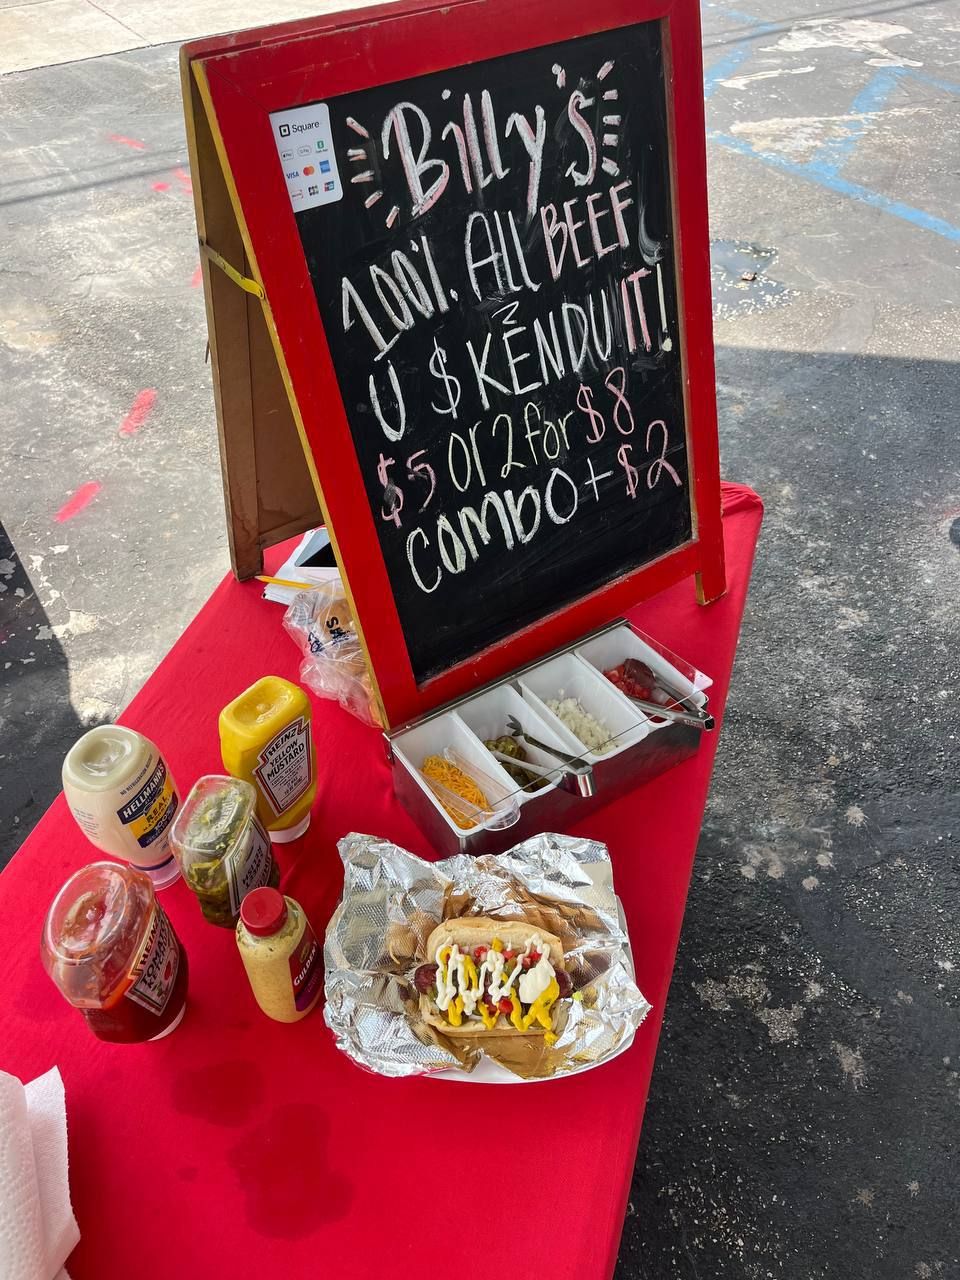 Square
Pay
G Pay
VISA
Billy's
100% All BEEF
U $KENDUIT!
$5 or 2 for $8
COMBO + $2
HEINZ
YELLOW
MUSTARD
HELLMANN'S
REAL
HEINZ
HEINZ
TOMATO
KETCHUP
GULDEN'S